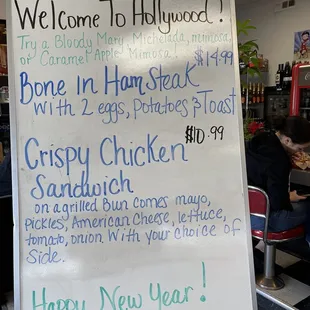 Welcome To Hollywood!
Try a Bloody Mary, Michelada, mimosa,
or Caramel Apple Mimosa!
$14.99
Bone in Ham Steak
with 2 eggs, Potatoes & Toast
$10.99
Crispy Chicken
Sandwich
on a grilled Bun comes mayo,
Pickles, American Cheese, lettuce,
tomato, onion. With your choice of
Side.
Happy New Year!